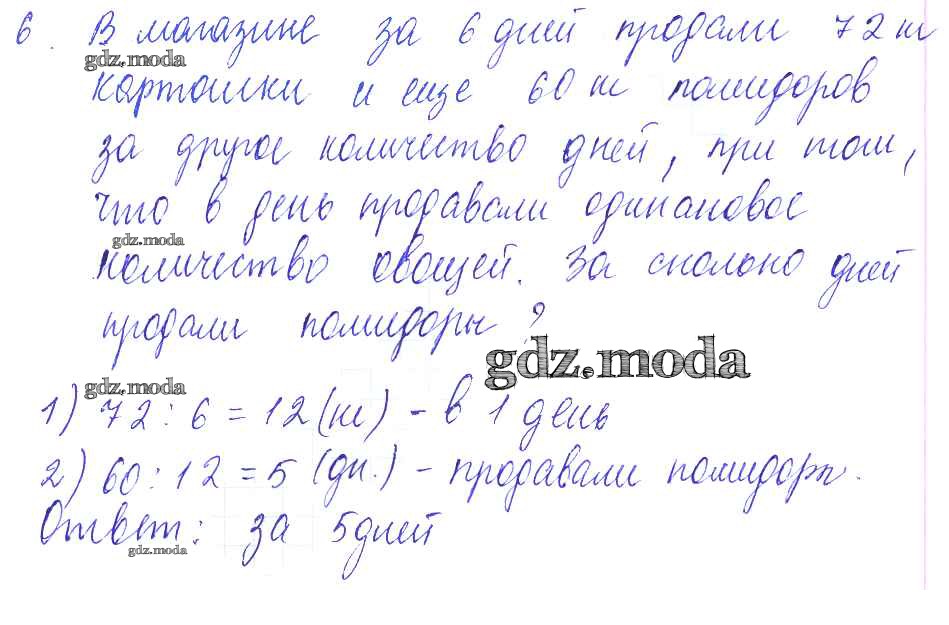 6. В магазине за 6 дней продали 72 кг
gdz.moda
картошки и еще 60 кг помидоров
за другое количество дней, при том,
что в день продавали одинаковое
gdz.moda
количество овощей. За сколько дней
продали помидоры?
gdz.moda
gdz.moda
1) 72 : 6 = 12 (кг) - в 1 день
2) 60 : 12 = 5 (дн.) - продавали помидоры.
Ответ: за 5 дней
gdz.moda